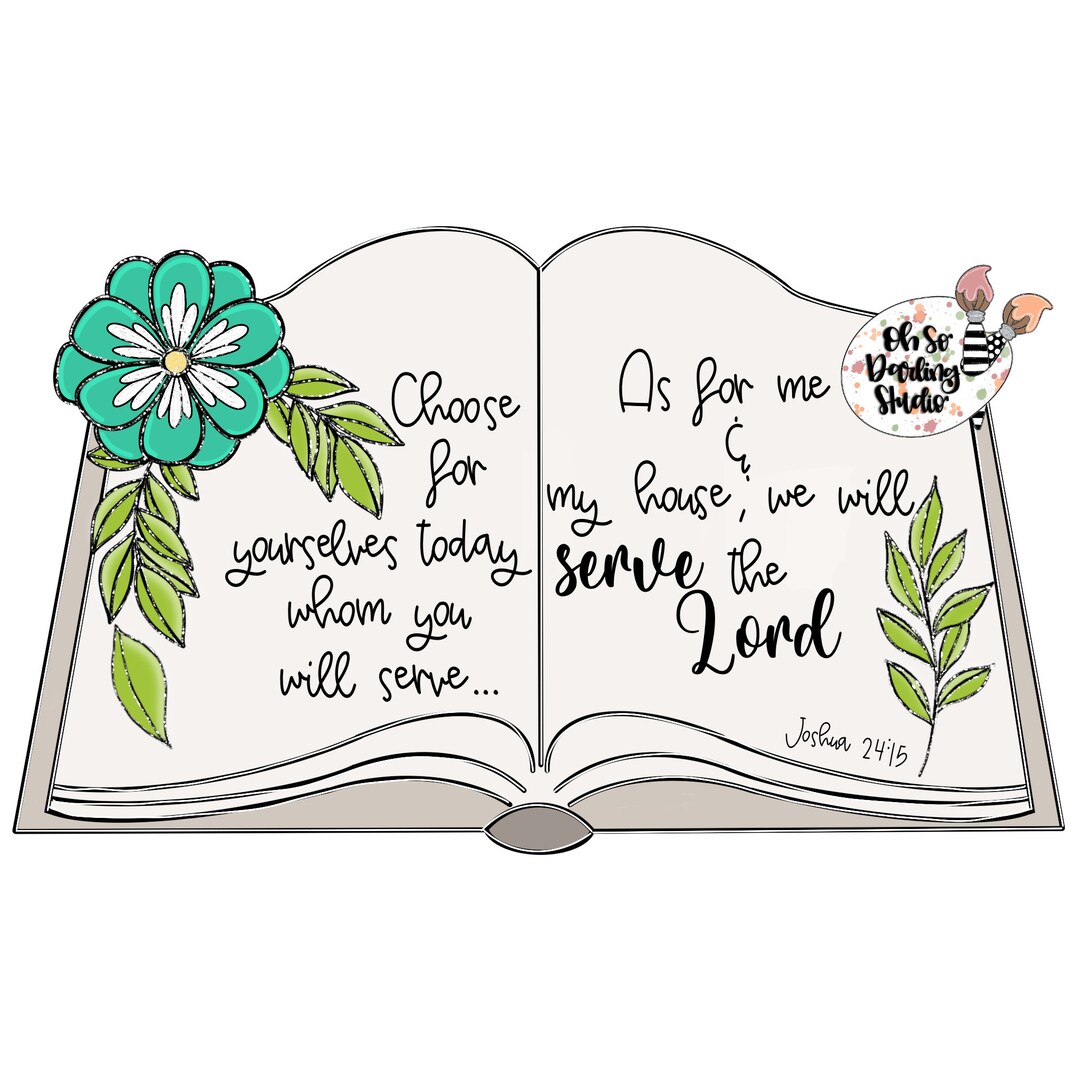 Choose
for
yourselves today
whom you
will serve...
As for me
&
my house, we will
serve the
Lord
Joshua 24:15
Oh So
Darling
Studio